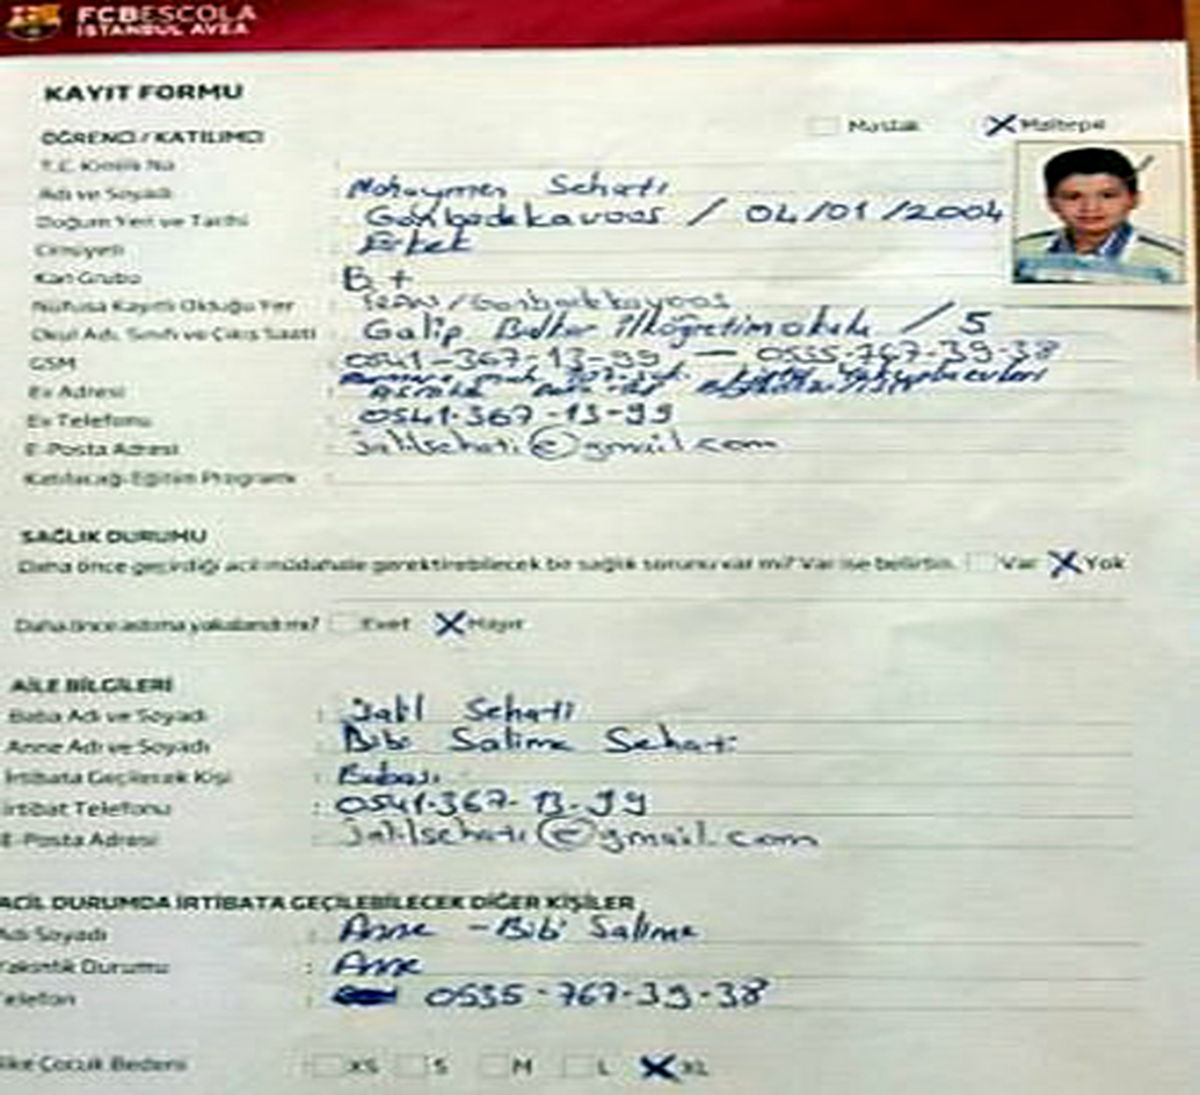 FCBESCOLA
ISTANBUL AVEA
KAYIT FORMU
ÖĞRENCİ / KATILIMCI
Maslak X Maltepe
T.C. Kimlik No
Adı ve Soyadı : Mohaymen Sehati
Doğum Yeri ve Tarihi : Gonbadekavoos / 04/01/2004
Cinsiyeti : Erkek
Kan Grubu : B+
Nüfusa Kayıtlı Olduğu Yer : İRAN / Gonbadekavoos
Okul Adı, Sınıfı ve Çıkış Saati : Galip Bulkar ilköğretim okulu / 5
GSM : 0541-367-13-99 - 0535-767-39-38
Ev Adresi :
Ev Telefonu : 0541-367-13-99
E-Posta Adresi : jalilsehati@gmail.com
Katılacağı Eğitim Programı :
SAĞLIK DURUMU
Daha önce geçirdiği acil müdahale gerektirebilecek bir sağlık sorunu var mı? Var ise belirtin. Var X Yok
Daha önce astıma yakalandı mı? Evet X Hayır
AİLE BİLGİLERİ
Baba Adı ve Soyadı : Jalil Sehati
Anne Adı ve Soyadı : Bibi Salime Sehati
İrtibata Geçilecek Kişi : Babası
İrtibat Telefonu : 0541-367-13-99
E-Posta Adresi : jalilsehati@gmail.com
ACİL DURUMDA İRTİBATA GEÇİLEBİLECEK DİĞER KİŞİLER
Adı Soyadı : Anne - Bibi Salime
Yakınlık Durumu : Anne
Telefon : 0535-767-39-38
Nike Çocuk Bedeni : XS S M L X XL